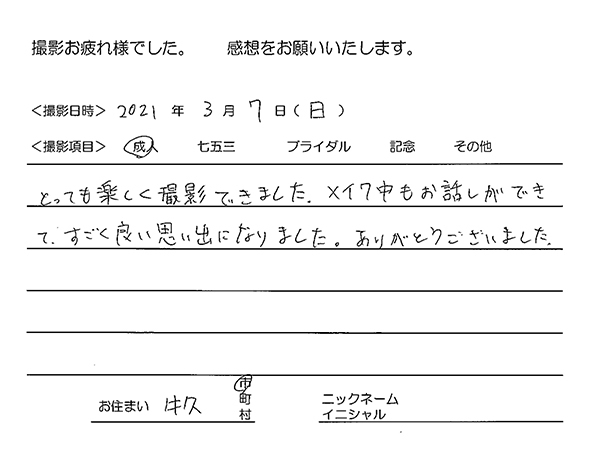 撮影お疲れ様でした。 感想をお願いいたします。
<撮影日時> 2021 年 3 月 7 日(日)
<撮影項目> 成人 七五三 ブライダル 記念 その他
とっても楽しく撮影できました。メイク中もお話しができ
て、すごく良い思い出になりました。ありがとうございました。
お住まい 牛久 市 町 村 ニックネーム
イニシャル